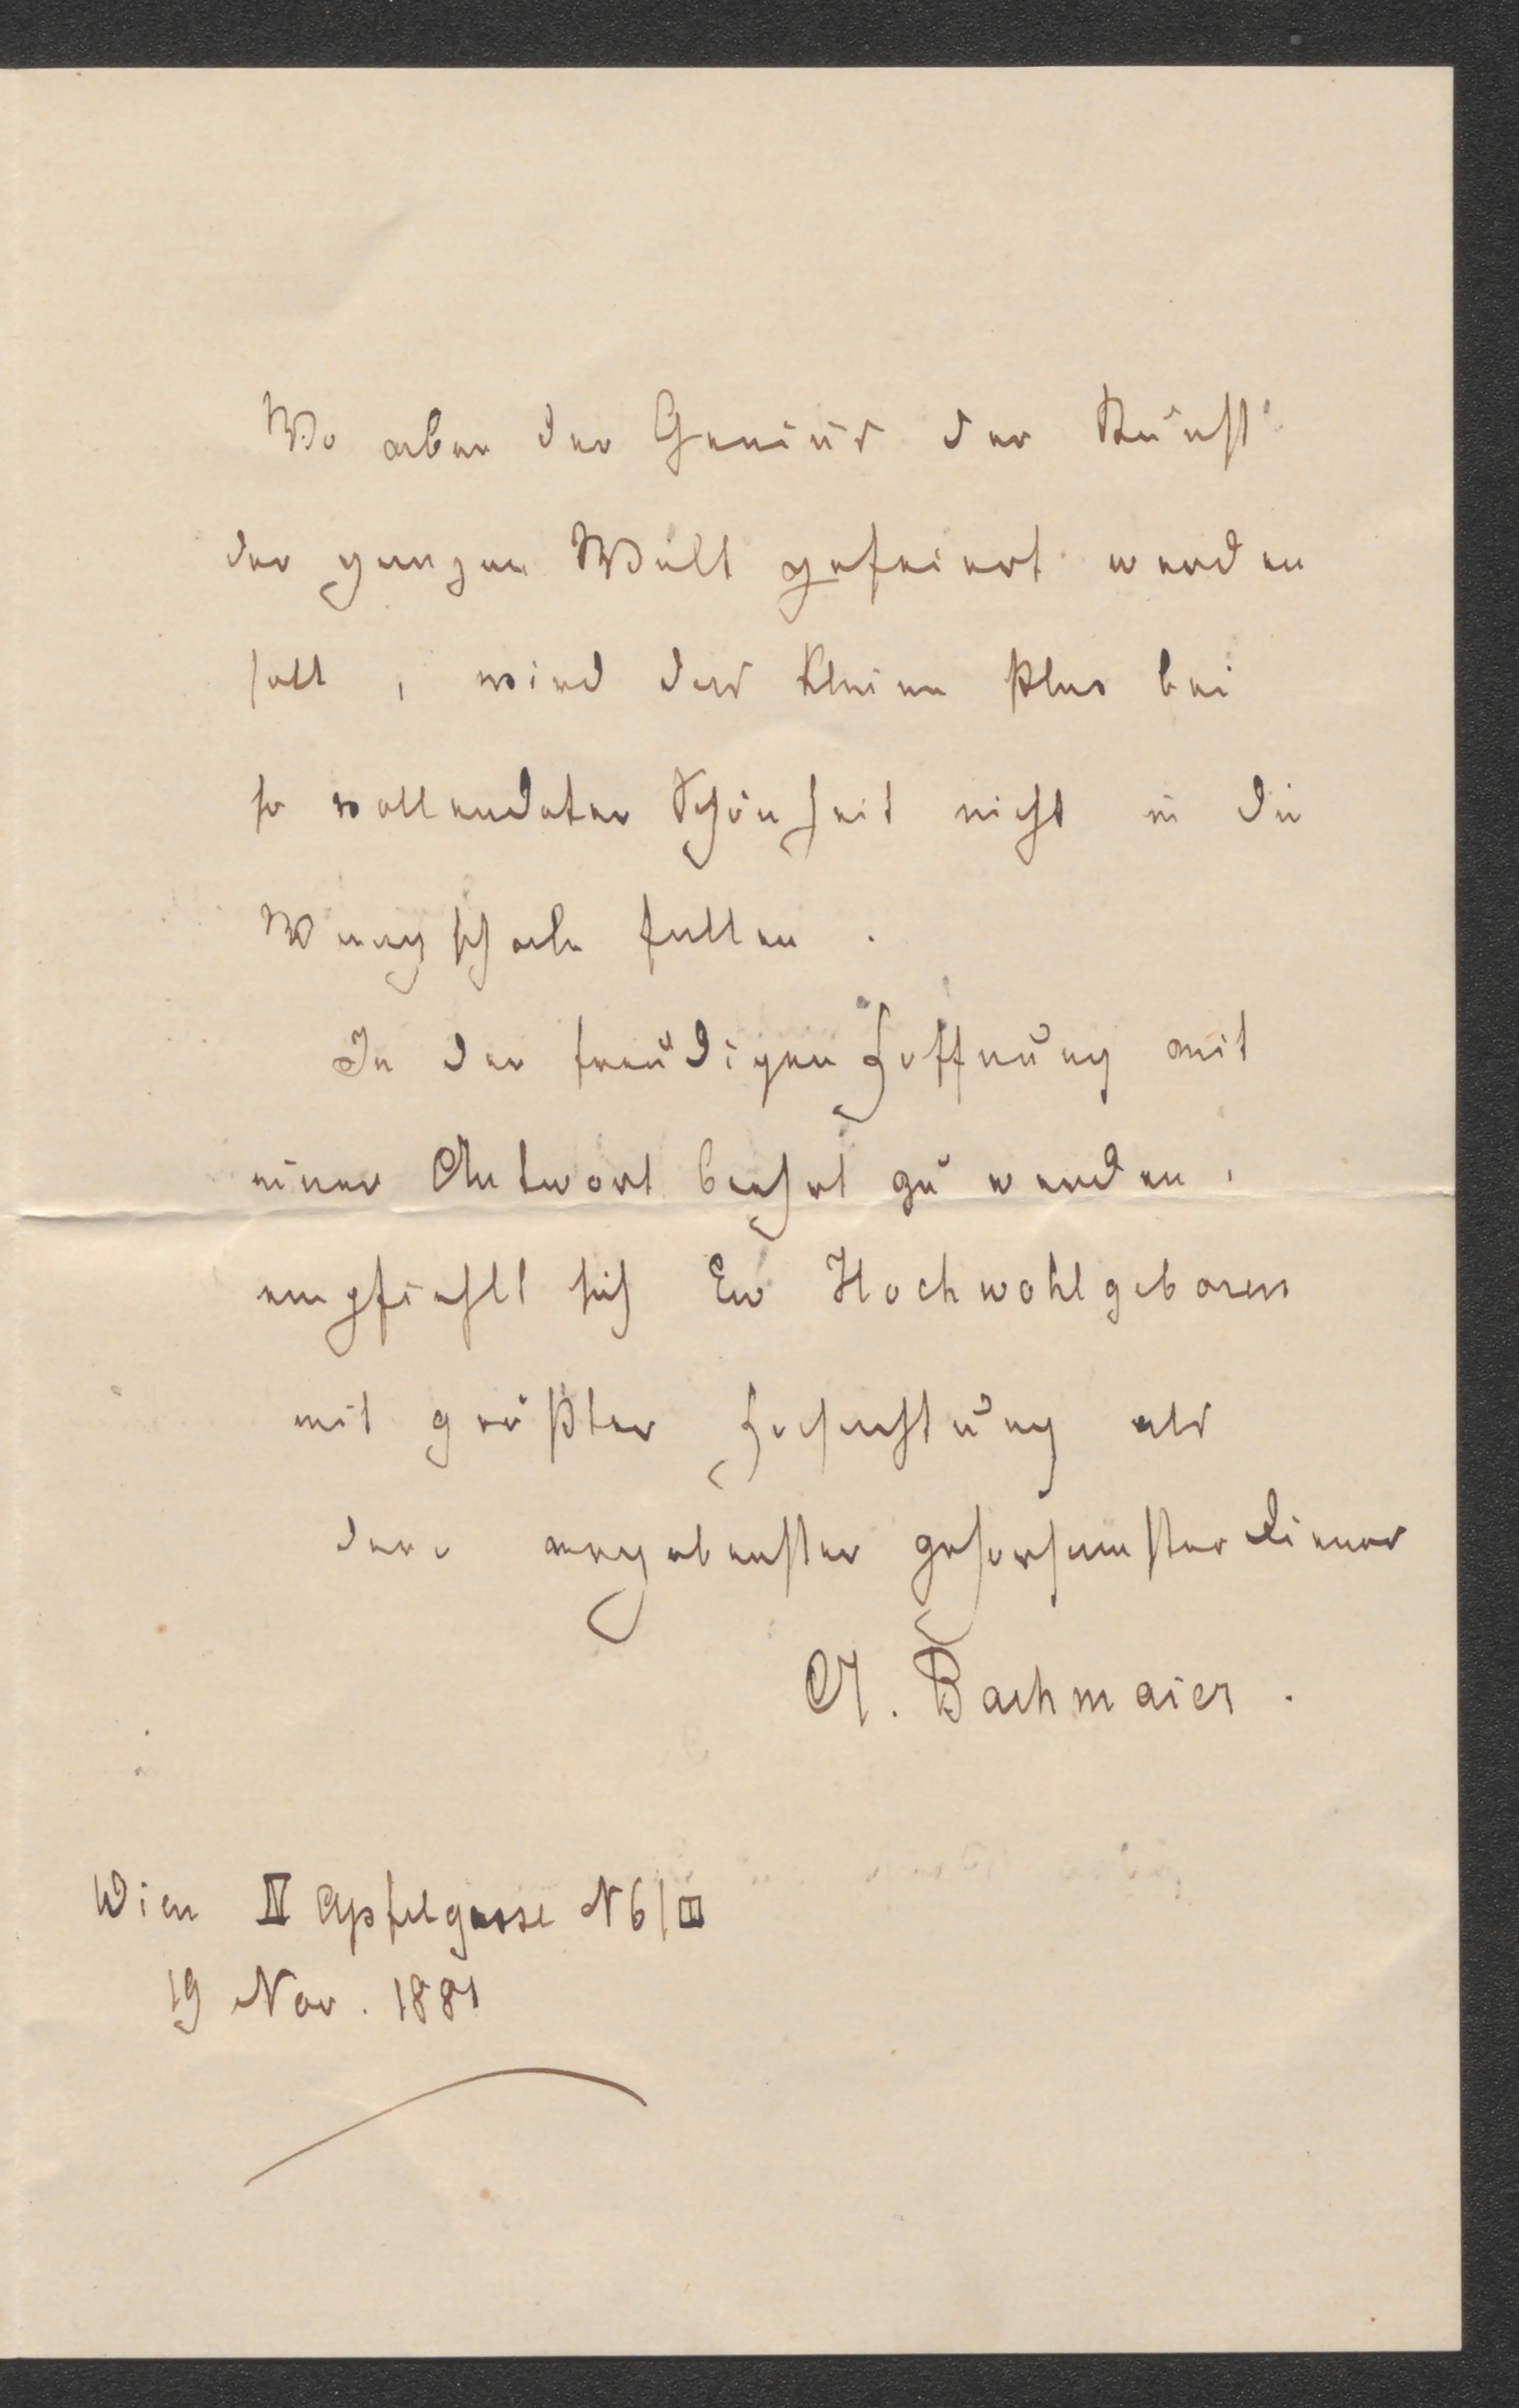 Wo aber der Genius der Kunst
der ganzen Welt gefeiert werden
soll, wird das kleine Plus bei
so vollendeter Schönheit nicht in die
Waagschale fallen.
In der freudigen Hoffnung mit
einer Antwort beehrt zu werden,
empfiehlt sich Ew Hochwohlgeboren
mit größter Hochachtung als
dero ergebenster gehorsamster Diener
A. Bachmaier.
Wien IV Apfelgasse N 6/III
19 Nov. 1881